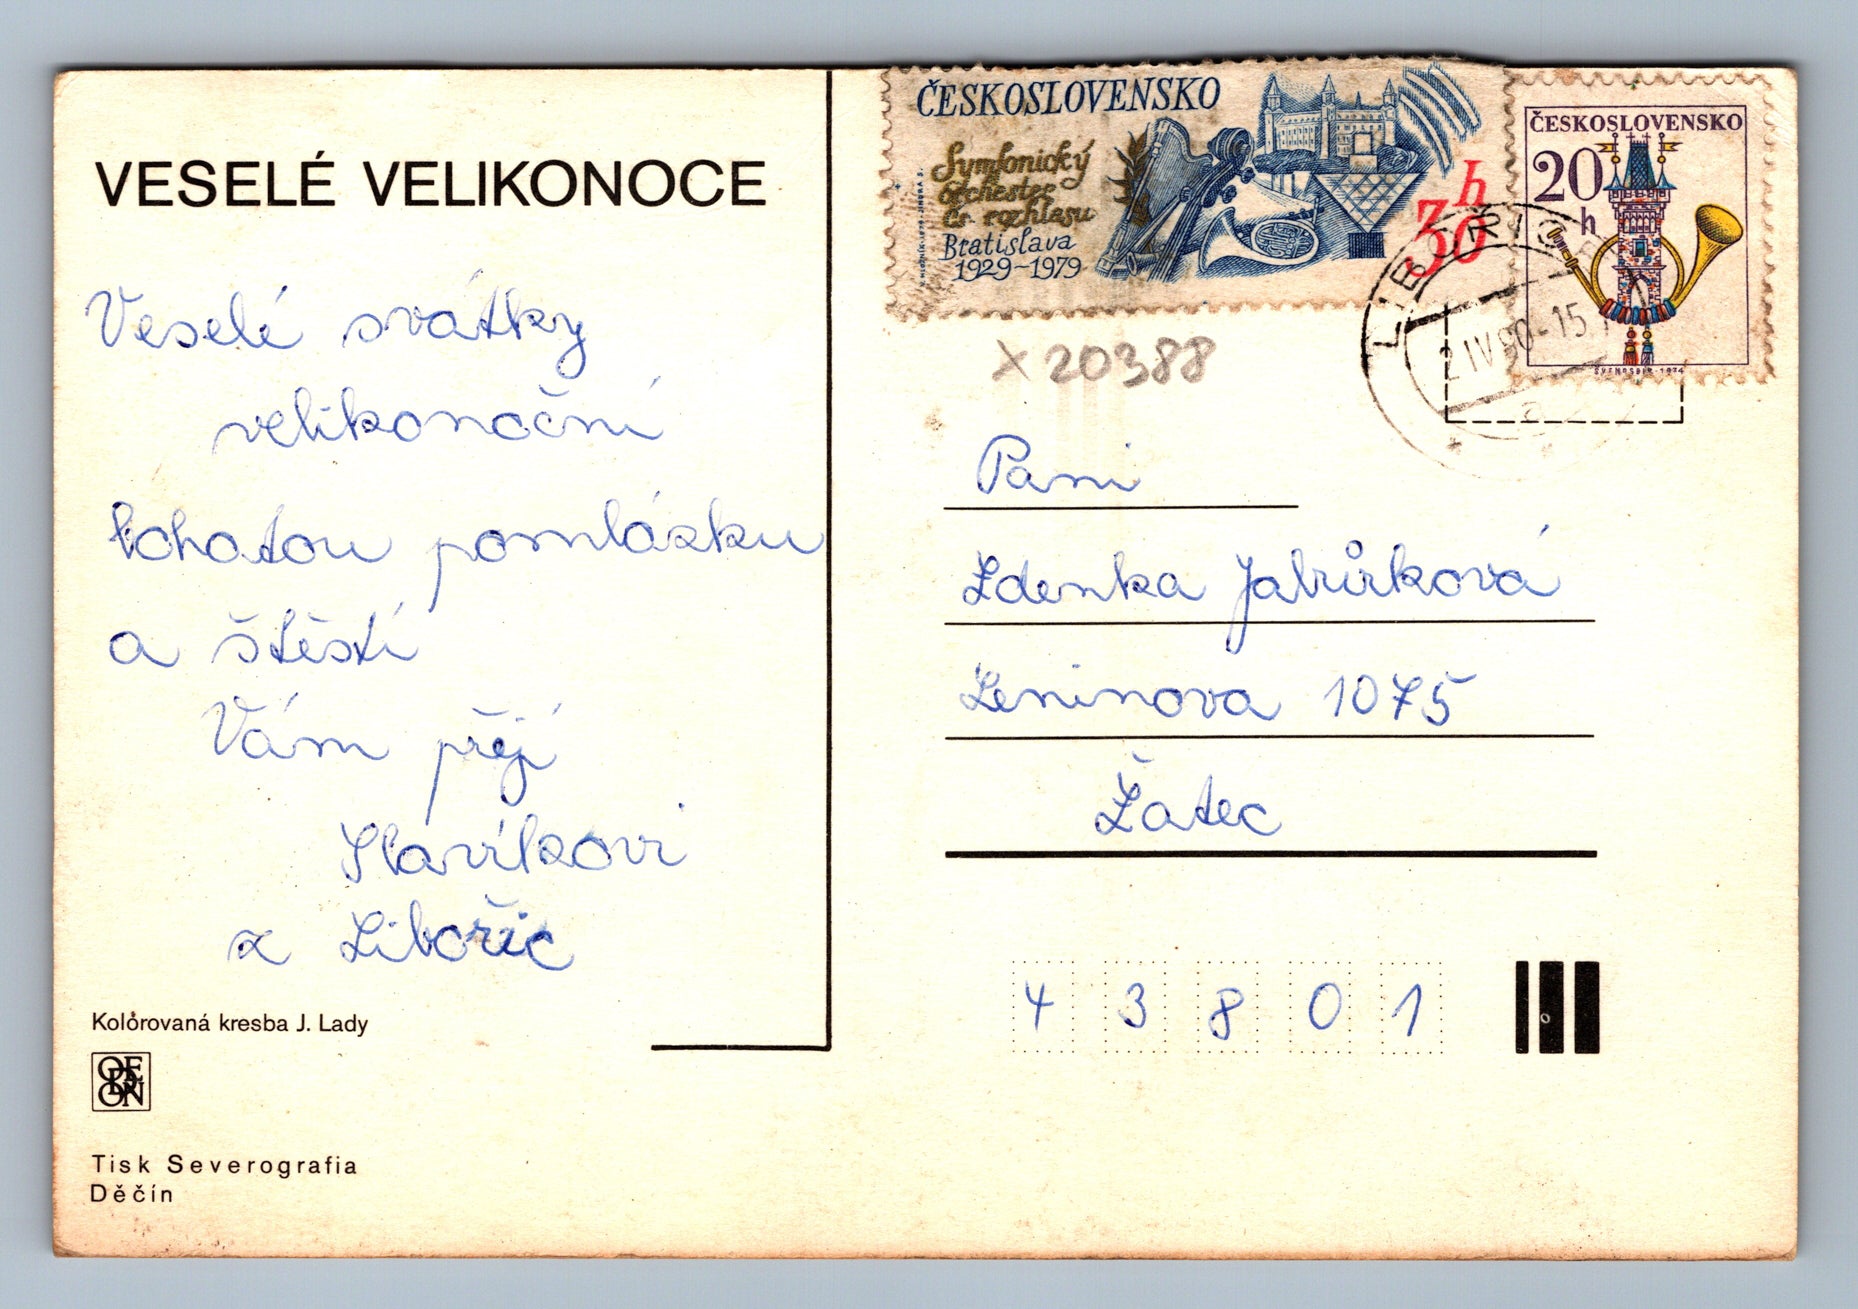 VESELÉ VELIKONOCE
Veselé svátky
velikonoční
bohatou pomlázku
a štěstí
Vám přejí
Slavíkovi
z Libořic
Kolorovaná kresba J. Lady
ODEON
Tisk Severografia
Děčín
ČESKOSLOVENSKO
Symfonický
orchester
čs. rozhlasu
Bratislava
1929-1979
30 h
ČESKOSLOVENSKO
20 h
LIBOŘICE
2 IV 90-15
X 20388
Paní
Zdenka Jabůrková
Leninova 1075
Žatec
43801